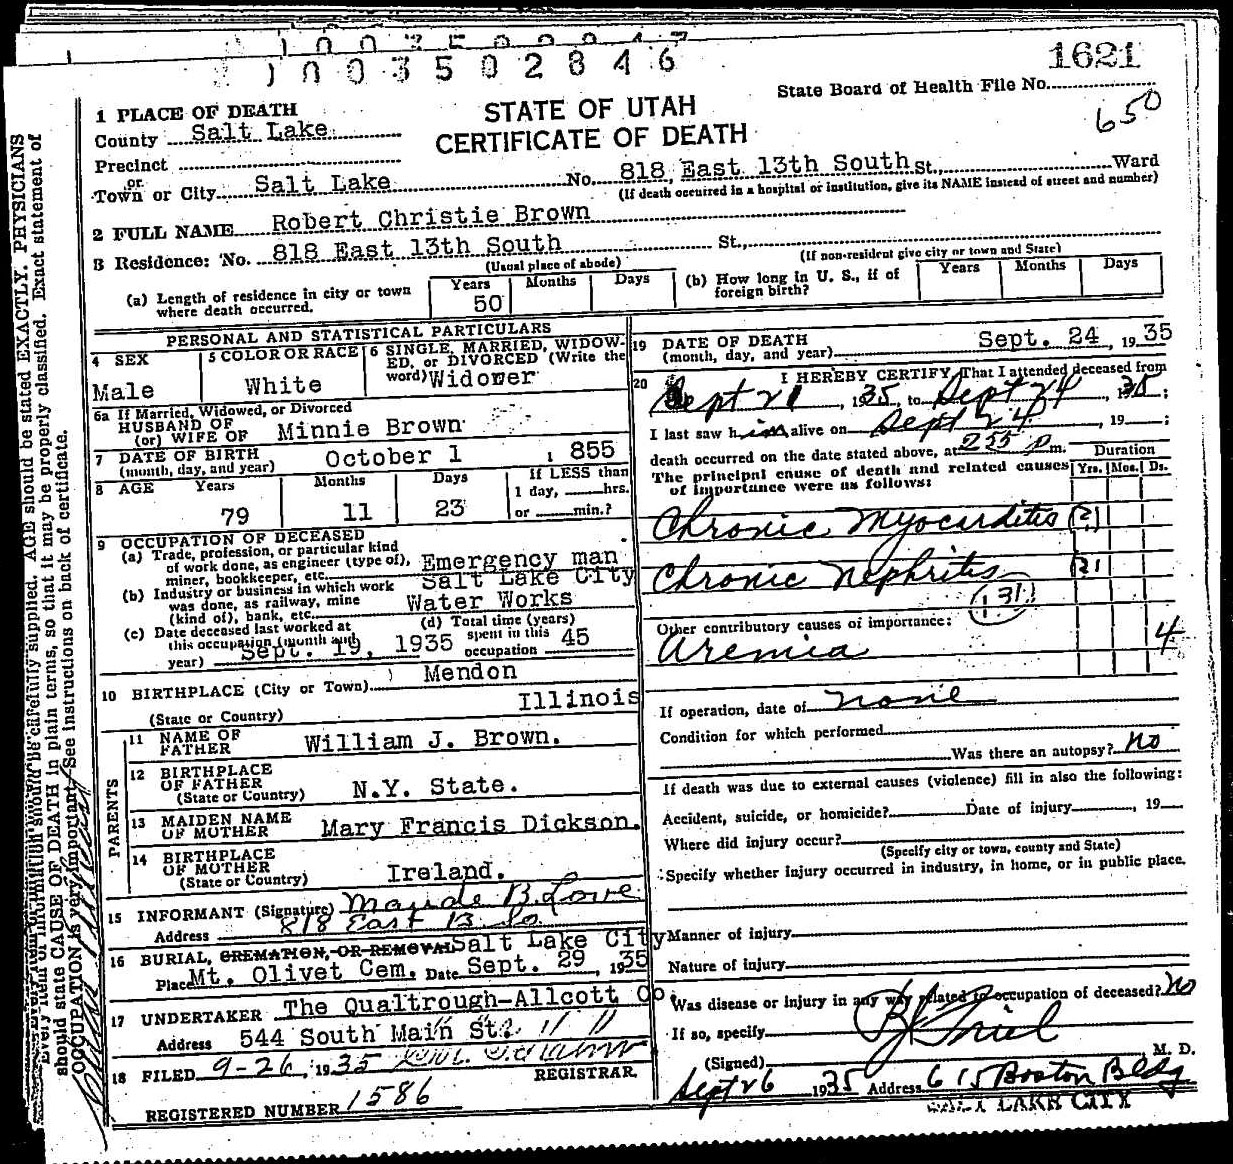 1003502846
1621
State Board of Health File No.
650
STATE OF UTAH
CERTIFICATE OF DEATH
1 PLACE OF DEATH
County Salt Lake
Precinct
or
Town or City Salt Lake No. 818 East 13th South St., Ward
(If death occurred in a hospital or institution, give its NAME instead of street and number)
2 FULL NAME Robert Christie Brown
3 Residence: No. 818 East 13th South St.,
(Usual place of abode) (If non-resident give city or town and State)
(a) Length of residence in city or town where death occurred. Years 50 Months Days
(b) How long in U. S., if of foreign birth? Years Months Days
PERSONAL AND STATISTICAL PARTICULARS
4 SEX
Male
5 COLOR OR RACE
White
6 SINGLE, MARRIED, WIDOWED, or DIVORCED (Write the word) Widower
6a If Married, Widowed, or Divorced
HUSBAND OF
(or) WIFE OF Minnie Brown
7 DATE OF BIRTH
(month, day, and year) October 1 1855
8 AGE Years Months Days If LESS than
1 day, hrs.
79 11 23 or min.?
9 OCCUPATION OF DECEASED
(a) Trade, profession, or particular kind
of work done, as engineer (type of),
miner, bookkeeper, etc. Emergency man
(b) Industry or business in which work
was done, as railway, mine
(kind of), bank, etc. Salt Lake City
Water Works
(c) Date deceased last worked at
this occupation (month and
year) Sept. 19, 1935
(d) Total time (years)
spent in this
occupation 45
10 BIRTHPLACE (City or Town) Mendon
(State or Country) Illinois
PARENTS
11 NAME OF
FATHER William J. Brown.
12 BIRTHPLACE
OF FATHER
(State or Country) N.Y. State.
13 MAIDEN NAME
OF MOTHER Mary Francis Dickson.
14 BIRTHPLACE
OF MOTHER
(State or Country) Ireland.
15 INFORMANT (Signature) Maude B. Lowe
Address 818 East 13 So.
16 BURIAL, CREMATION, OR REMOVAL Salt Lake City
Place Mt. Olivet Cem. Date Sept. 29, 1935
17 UNDERTAKER The Qualtrough-Allcott Co
Address 544 South Main St.
18 FILED 9-26, 1935
REGISTRAR.
REGISTERED NUMBER 1586
19 DATE OF DEATH
(month, day, and year) Sept. 24, 1935
20 I HEREBY CERTIFY, That I attended deceased from
Sept 21, 1935, to Sept 24, 1935;
I last saw him alive on Sept 24, 19 ;
death occurred on the date stated above, at 255 p m.
The principal cause of death and related causes
of importance were as follows:
Duration
Yrs. Mos. Ds.
Chronic Myocarditis (2)
Chronic Nephritis
131
Other contributory causes of importance:
Uremia 4
If operation, date of none
Condition for which performed
Was there an autopsy? No
If death was due to external causes (violence) fill in also the following:
Accident, suicide, or homicide? Date of injury , 19
Where did injury occur?
(Specify city or town, county and State)
Specify whether injury occurred in industry, in home, or in public place.
Manner of injury
Nature of injury
Was disease or injury in any way related to occupation of deceased? No
If so, specify
(Signed) M. D.
Sept 26 1935 Address 615 Boston Bldg
SALT LAKE CITY
should state CAUSE OF DEATH in plain terms, so that it may be properly classified. Exact statement of
OCCUPATION is very important. See instructions on back of certificate.
supplied. AGE should be stated EXACTLY. PHYSICIANS